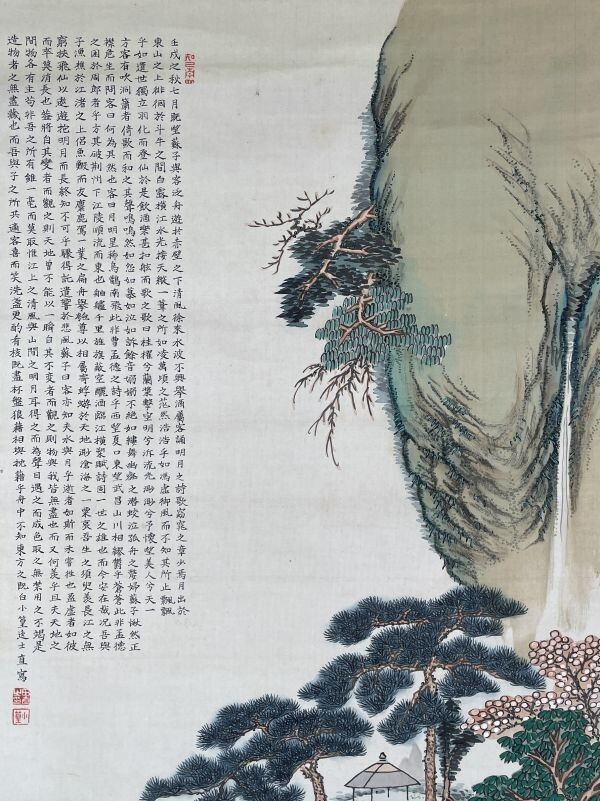 壬戌之秋七月既望蘇子與客泛舟遊於赤壁之下清風徐來水波不興舉酒屬客誦明月之詩歌窈窕之章少焉月出於
東山之上徘徊於斗牛之間白露橫江水光接天縱一葦之所如凌萬頃之茫然浩浩乎如馮虛御風而不知其所止飄飄
乎如遺世獨立羽化而登仙於是飲酒樂甚扣舷而歌之歌曰桂櫂兮蘭槳擊空明兮泝流光渺渺兮予懷望美人兮天一
方客有吹洞簫者倚歌而和之其聲嗚嗚然如怨如慕如泣如訴餘音嫋嫋不絕如縷舞幽壑之潛蛟泣孤舟之嫠婦蘇子愀然正
襟危坐而問客曰何為其然也客曰月明星稀烏鵲南飛此非曹孟德之詩乎西望夏口東望武昌山川相繆鬱乎蒼蒼此非孟德
之困於周郎者乎方其破荊州下江陵順流而東也舳艫千里旌旗蔽空釃酒臨江橫槊賦詩固一世之雄也而今安在哉況吾與
子漁樵於江渚之上侶魚蝦而友麋鹿駕一葉之扁舟舉匏尊以相屬寄蜉蝣於天地渺滄海之一粟哀吾生之須臾羨長江之無
窮挾飛仙以遨遊抱明月而長終知不可乎驟得託遺響於悲風蘇子曰客亦知夫水與月乎逝者如斯而未嘗往也盈虛者如彼
而卒莫消長也蓋將自其變者而觀之則天地曾不能以一瞬自其不變者而觀之則物與我皆無盡也而又何羨乎且夫天地之
間物各有主苟非吾之所有雖一毫而莫取惟江上之清風與山間之明月耳得之而為聲目遇之而成色取之無禁用之不竭是
造物者之無盡藏也而吾與子之所共適客喜而笑洗盞更酌肴核既盡杯盤狼籍相與枕藉乎舟中不知東方之既白小篁逸士直寫